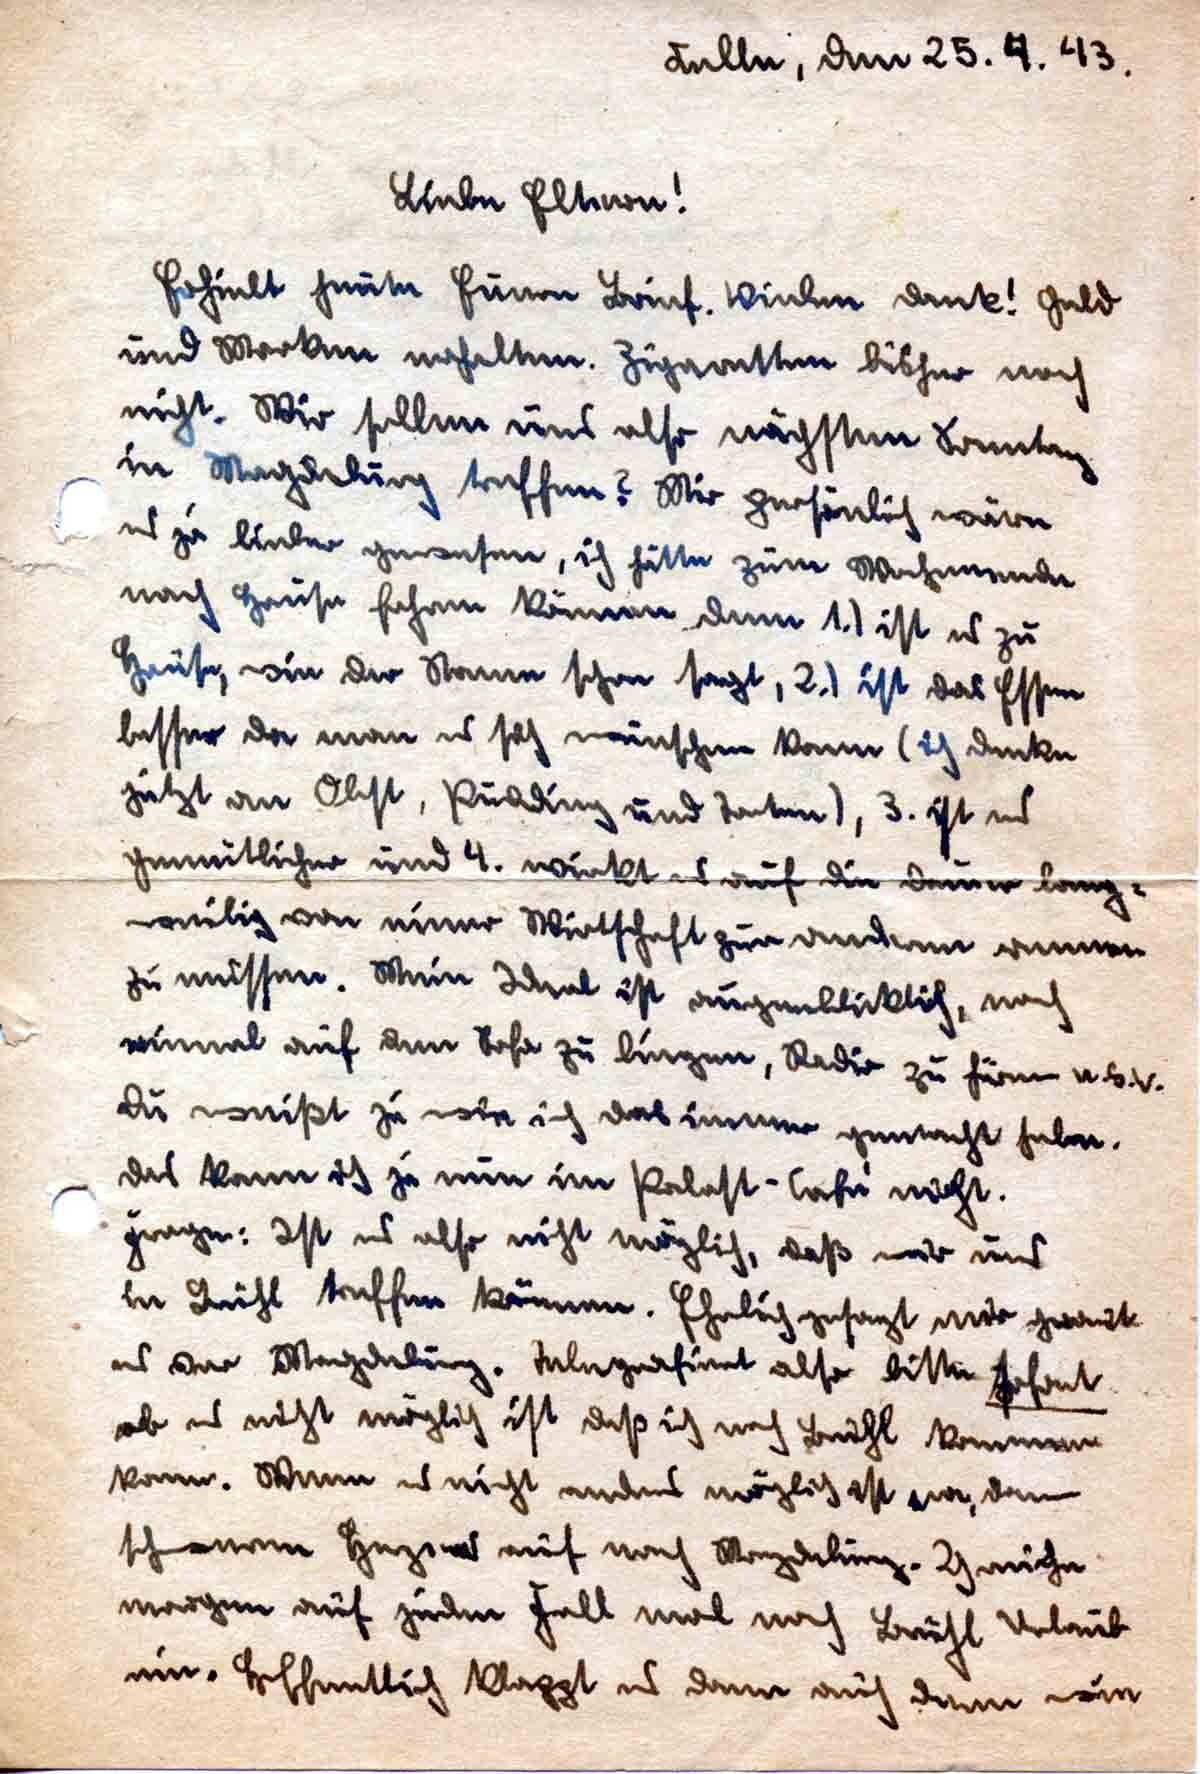 Halle, den 25. 4. 43.
Liebe Eltern!
Erhielt heute Euren Brief. Vielen Dank! Geld
und Marken erhalten. Zigaretten bisher noch
nicht. Wir sollen uns also nächsten Sonntag
in Magdeburg treffen? Mir persönlich wäre
es ja lieber gewesen, ich hätte zum Wochenende
nach Hause fahren können denn 1.) ist es zu
Hause, wie der Name schon sagt, 2.) ist das Essen
besser da man es sich wünschen kann (ich denke
jetzt an Obst, Pudding und Torten), 3. ist es
gemütlicher und 4. wirkt es auf die Dauer lang=
weilig von einer Wirtschaft zur anderen rennen
zu müssen. Mein Ideal ist augenblicklich, noch
einmal auf dem Sofa zu liegen, Radio zu hören u.s.w.
Du weißt ja wie ich das immer gemacht habe.
Das kann ich ja nun im Palast-Café nicht.
Frage: Ist es also nicht möglich, daß wir uns
in Brühl treffen können. Ehrlich gesagt mir graut
es vor Magdeburg. Telegrafiert also bitte sofort
ob es nicht möglich ist daß ich nach Brühl kommen
kann. Wenn es nicht anders möglich ist, dann
schweren Herzens auf nach Magdeburg. Ich reiche
morgen auf jeden Fall mal nach Brühl Urlaub
ein. Hoffentlich klappt es dann auch denn wie